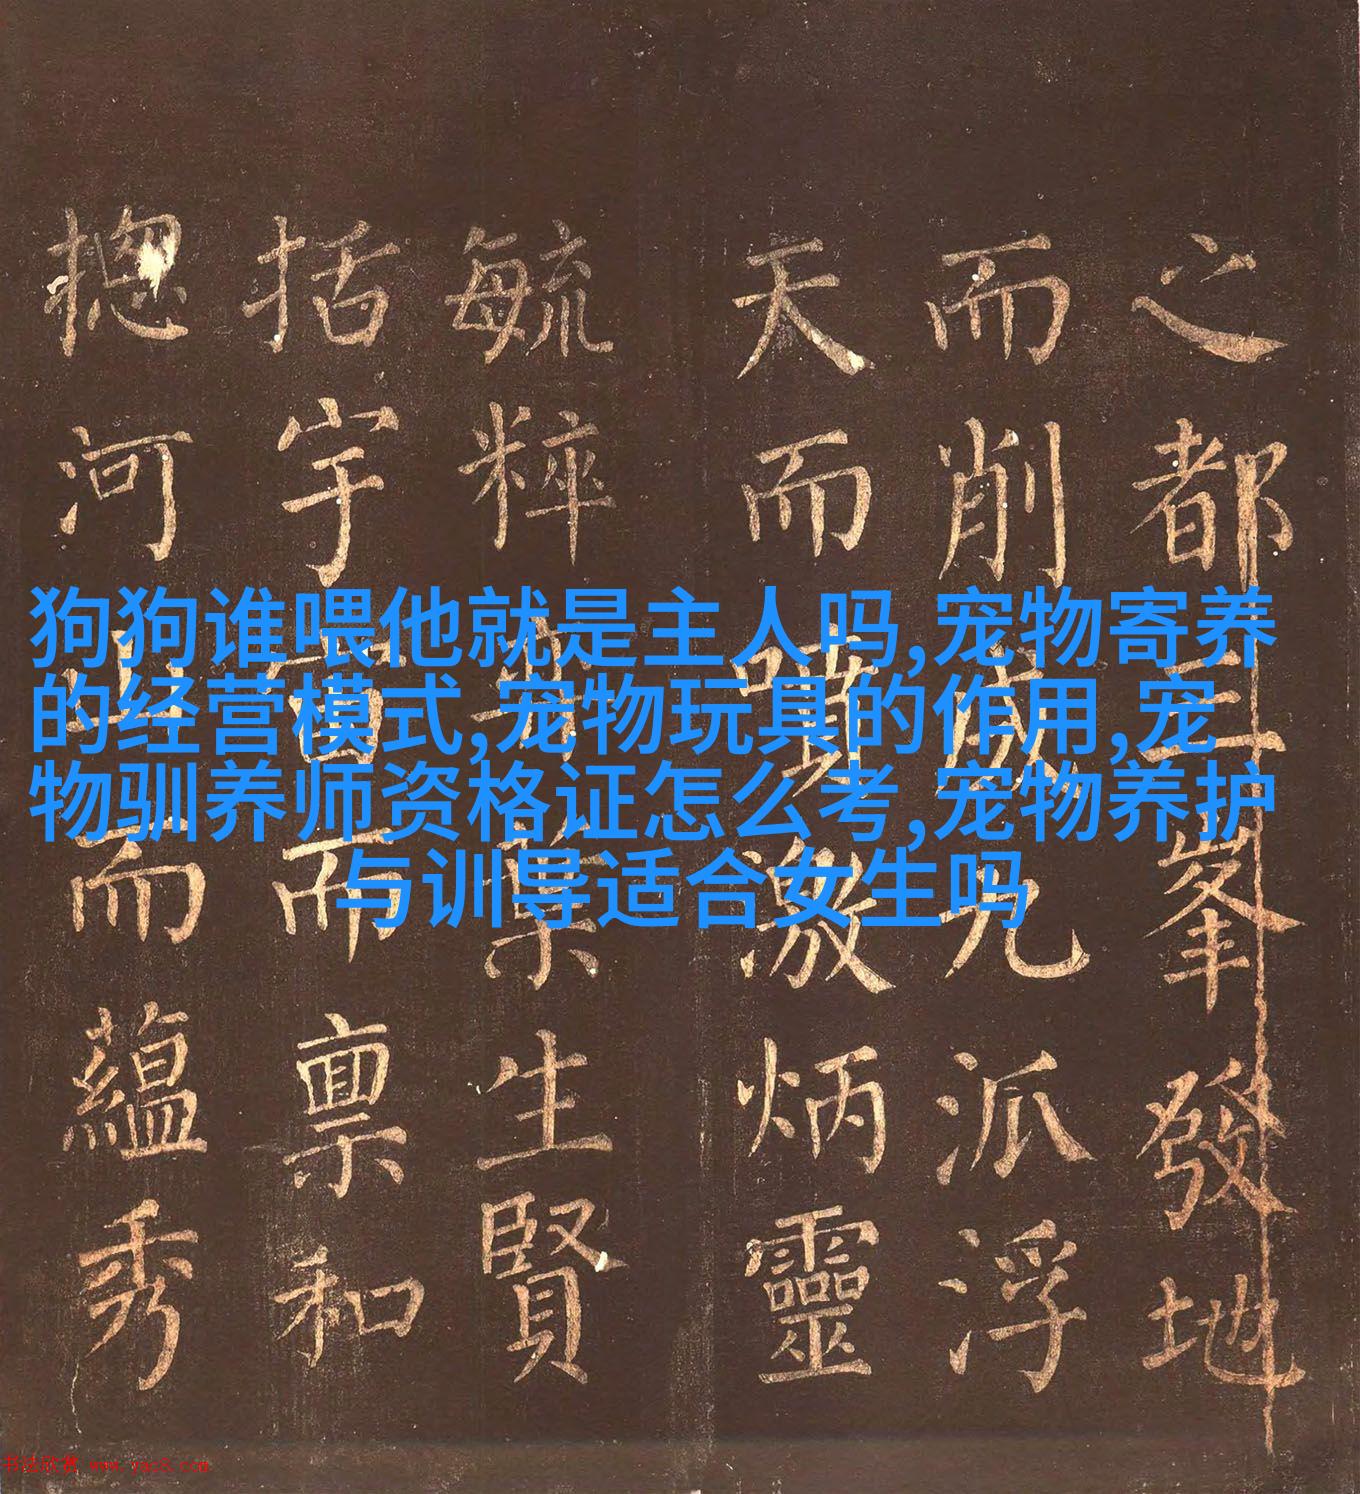 狗狗谁喂他就是主人吗,宠物寄养
的经营模式,宠物玩具的作用,宠
物驯养师资格证怎么考,宠物养护
与训导适合女生吗
之都三峯發地
而削成九派浮
天而噴激炳靈
毓粹葉生賢
括宇宙而禀和
揔河山而蘊秀
书法欣赏 www.yac8.com